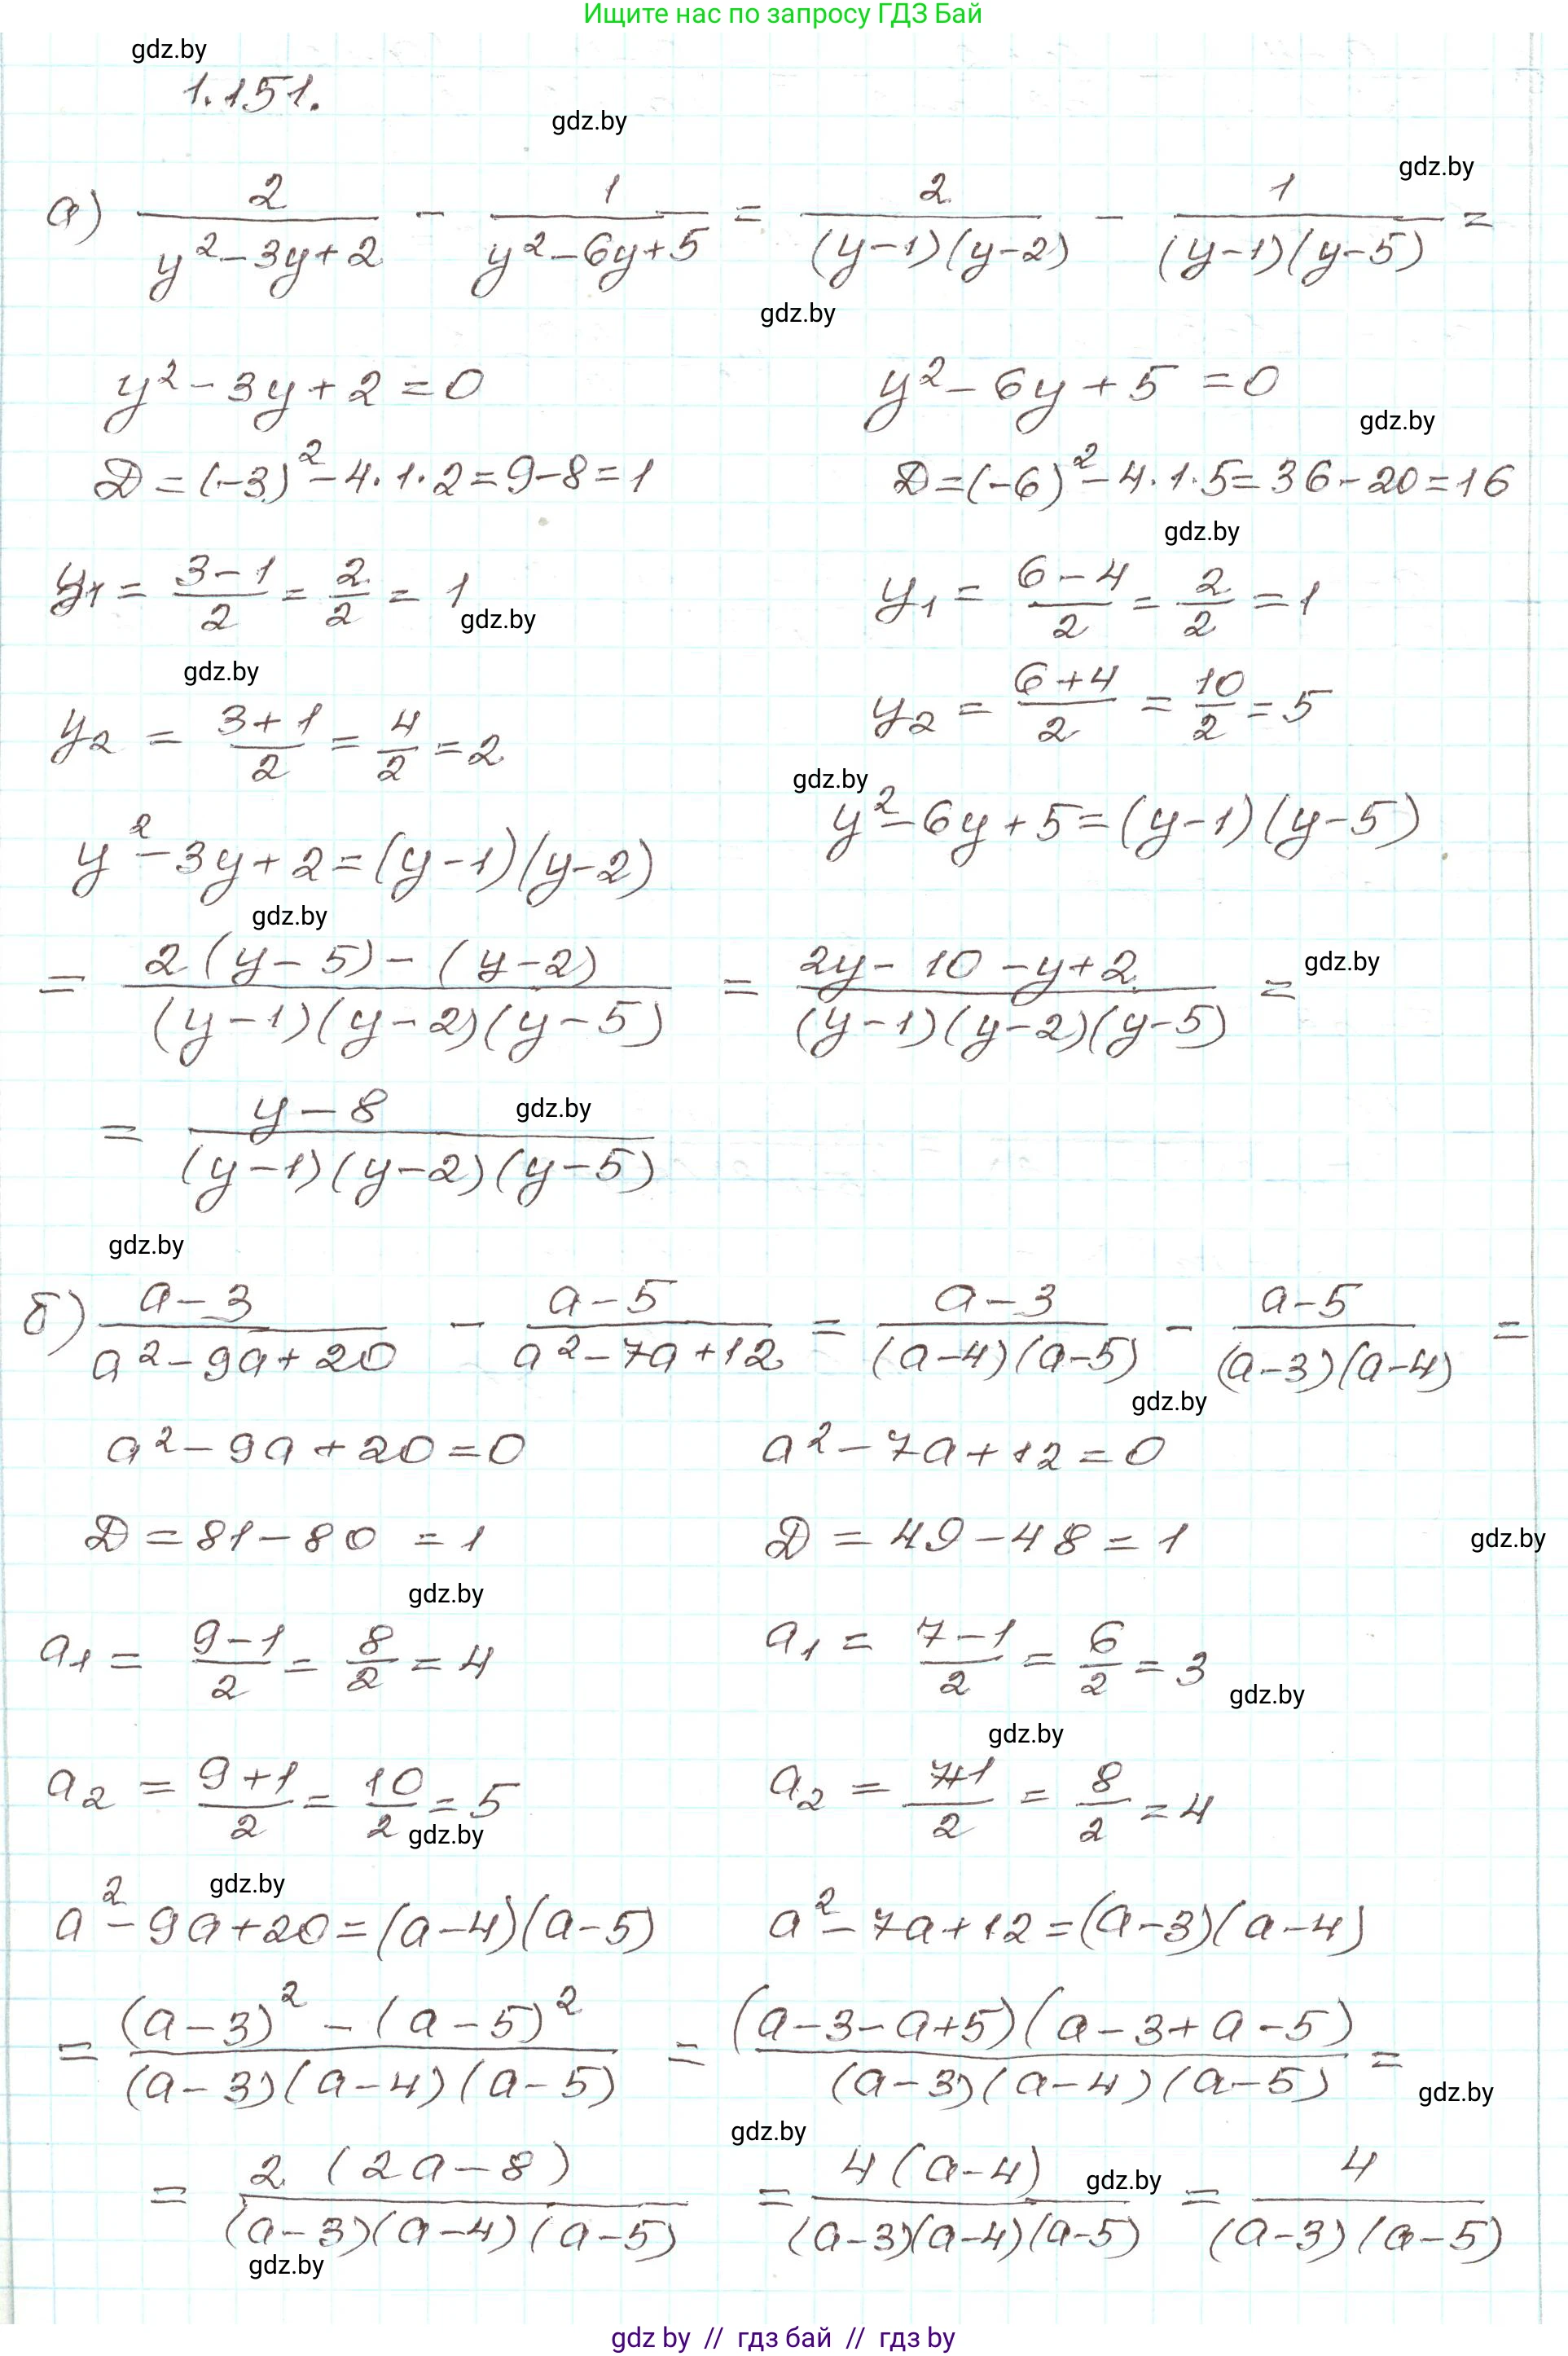 Ищите нас по запросу ГДЗ Бай
gdz.by
1.151.
gdz.by
gdz.by
а) 2/(y²-3y+2) - 1/(y²-6y+5) = 2/((y-1)(y-2)) - 1/((y-1)(y-5)) =
gdz.by
y²-3y+2=0 y²-6y+5=0
gdz.by
D=(-3)²-4·1·2=9-8=1 D=(-6)²-4·1·5=36-20=16
gdz.by
y₁=(3-1)/2=2/2=1 y₁=(6-4)/2=2/2=1
gdz.by
gdz.by
y₂=(3+1)/2=4/2=2 y₂=(6+4)/2=10/2=5
gdz.by
y²-3y+2=(y-1)(y-2) y²-6y+5=(y-1)(y-5)
gdz.by
= (2(y-5)-(y-2))/((y-1)(y-2)(y-5)) = (2y-10-y+2)/((y-1)(y-2)(y-5)) =
gdz.by
= (y-8)/((y-1)(y-2)(y-5))
gdz.by
gdz.by
б) (a-3)/(a²-9a+20) - (a-5)/(a²-7a+12) = (a-3)/((a-4)(a-5)) - (a-5)/((a-3)(a-4)) =
gdz.by
a²-9a+20=0 a²-7a+12=0
D=81-80=1 D=49-48=1
gdz.by
gdz.by
a₁=(9-1)/2=8/2=4 a₁=(7-1)/2=6/2=3
gdz.by
gdz.by
a₂=(9+1)/2=10/2=5 a₂=(7+1)/2=8/2=4
gdz.by
gdz.by
a²-9a+20=(a-4)(a-5) a²-7a+12=(a-3)(a-4)
= ((a-3)²-(a-5)²)/((a-3)(a-4)(a-5)) = ((a-3-a+5)(a-3+a-5))/((a-3)(a-4)(a-5)) =
gdz.by
gdz.by
= (2(2a-8))/((a-3)(a-4)(a-5)) = (4(a-4))/((a-3)(a-4)(a-5)) = 4/((a-3)(a-5))
gdz.by
gdz.by
gdz by // гдз бай // гдз by